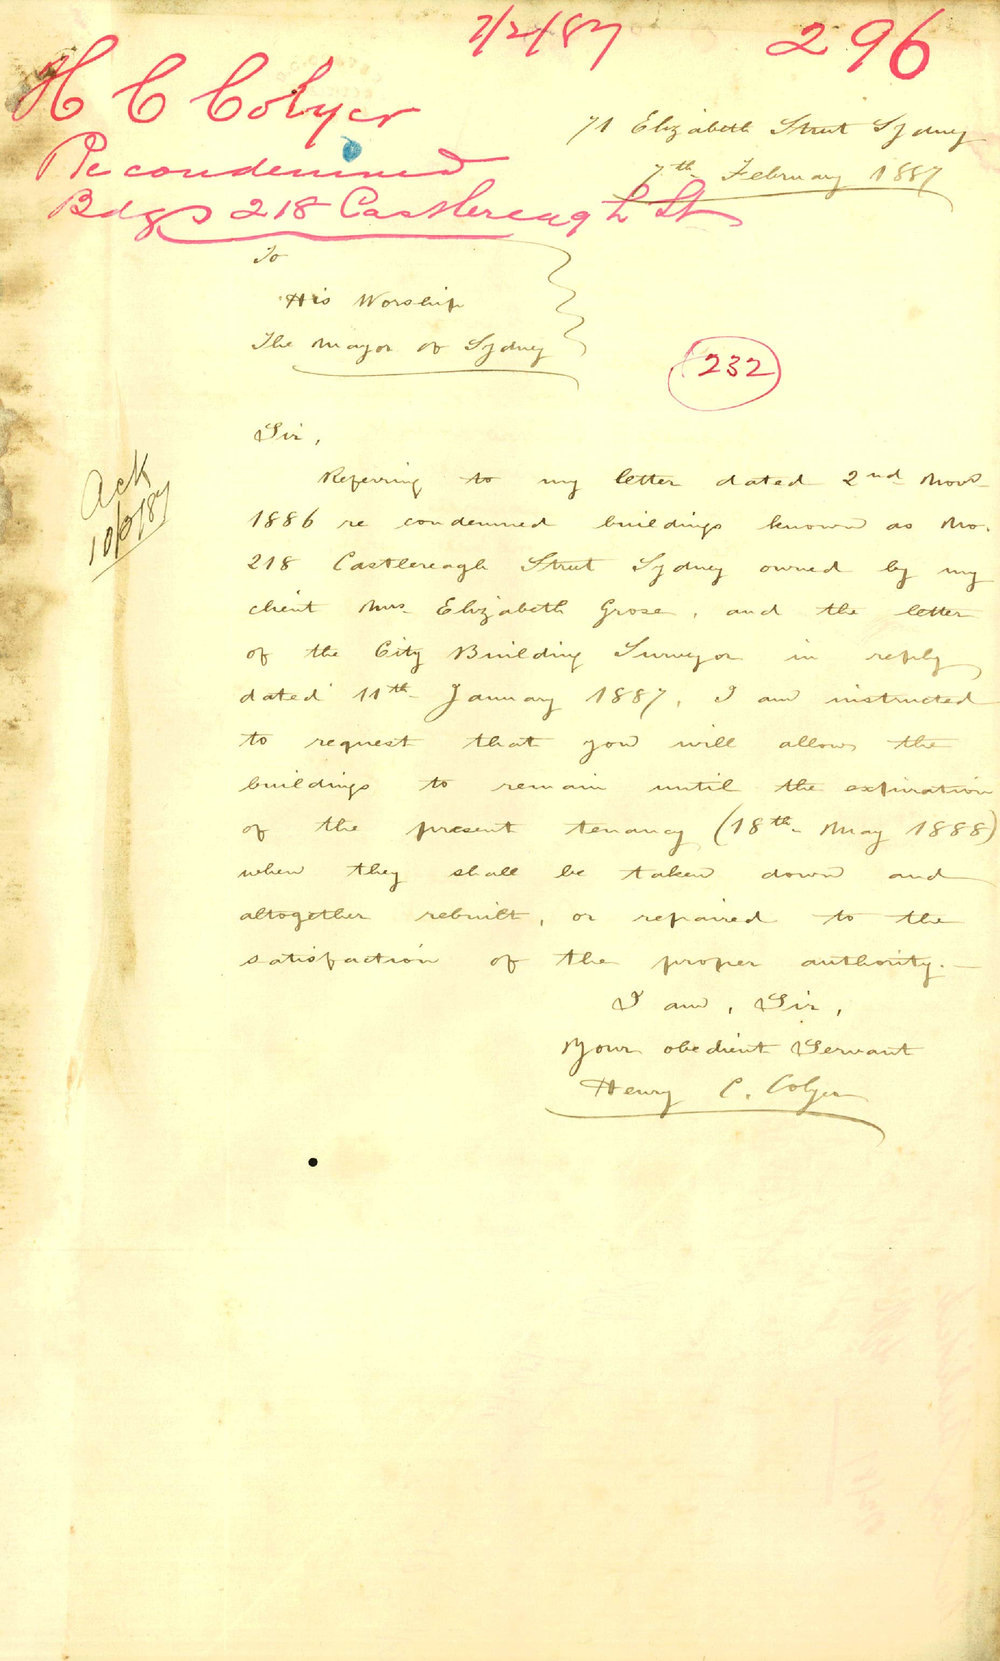 7/2/87
296
H C Colyer
Re condemned
Bdgs 218 Castlereagh St
71 Elizabeth Street Sydney
7th February 1887
To
His Worship
The Mayor of Sydney
232
Sir,
Referring to my letter dated 2nd Novr
1886 re condemned buildings known as No.
218 Castlereagh Street Sydney owned by my
client Mrs. Elizabeth Grose, and the letter
of the City Building Surveyor in reply
dated 11th January 1887, I am instructed
to request that you will allow the
buildings to remain until the expiration
of the present tenancy (18th May 1888)
when they shall be taken down and
altogether rebuilt, or repaired to the
satisfaction of the proper authority.—
I am, Sir,
Your obedient Servant
Henry C. Colyer
Ack
10/2/87